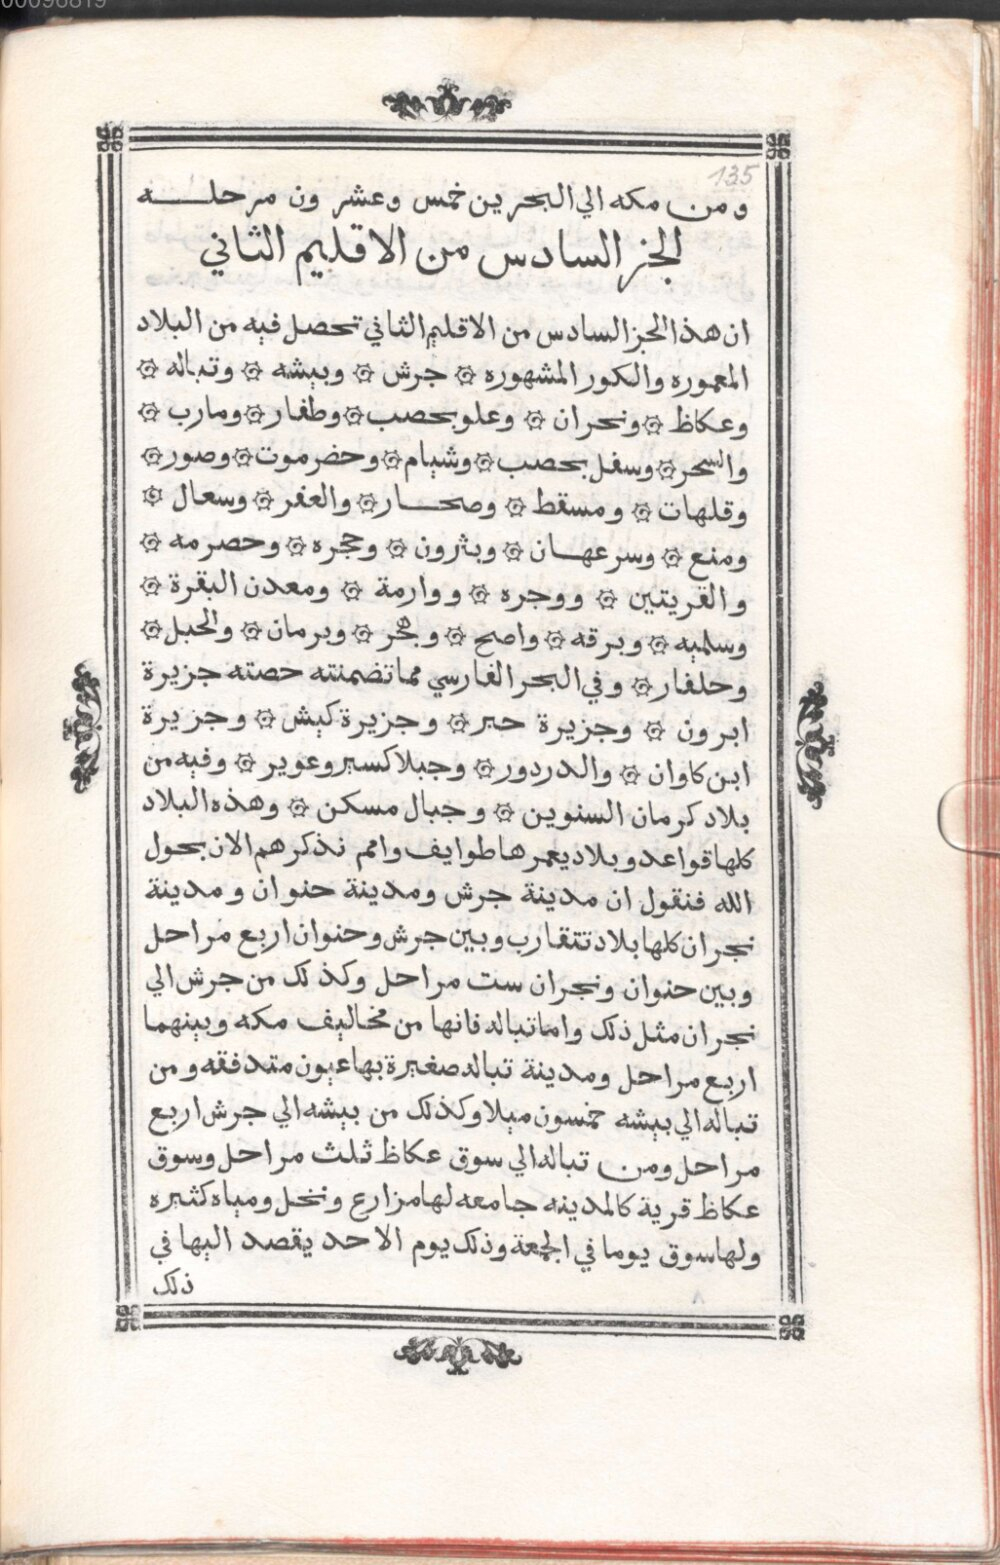 00096819
135
ومن مكه الي البحرين خمس وعشرون مرحلــه
الجز السادس من الاقليم الثاني
ان هذا الجز السادس من الاقليم الثاني تحصل فيه من البلاد
المعموره والكور المشهوره ۞ جرش ۞ وبيشه ۞ وتباله ۞
وعكاظ ۞ ونجران ۞ وعلو يحصب ۞ وظفار ۞ ومارب ۞
والسحر ۞ وسفل يحصب ۞ وشبام ۞ وحضرموت ۞ وصور ۞
وقلهات ۞ ومسقط ۞ وصحــار ۞ والعفر ۞ وسعال ۞
ومنع ۞ وسرعهــان ۞ وبثرون ۞ وحجره ۞ وحصرمه ۞
والقريتين ۞ ووجره ۞ ووارمة ۞ ومعدن البقرة ۞
وسلميه ۞ وبرقه ۞ واصح ۞ وهجر ۞ وبرمان ۞ والحبل ۞
وحلفار ۞ وفي البحر الفارسي مما تضمنته حصته جزيرة
ابرون ۞ وجزيرة حير ۞ وجزيرة كيش ۞ وجزيرة
ابن كاوان ۞ والدردور ۞ وجبلا كسير وعوير ۞ وفيه من
بلاد كرمان السنوين ۞ وجبال مسكن ۞ وهذه البلاد
كلها قواعد وبلاد يعمرها طوايف وامم نذكرهم الان بحول
الله فنقول ان مدينة جرش ومدينة حنوان ومدينة
نجران كلها بلاد تتقارب وبين جرش وحنوان اربع مراحل
وبين حنوان ونجران ست مراحل وكذلك من جرش الي
نجران مثل ذلك واما تباله فانها من مخاليف مكه وبينهما
اربع مراحل ومدينة تباله صغيرة بها عيون متدفقه ومن
تباله الي بيشه خمسون ميلا وكذلك من بيشه الي جرش اربع
مراحل ومن تباله الي سوق عكاظ ثلث مراحل وسوق
عكاظ قرية كالمدينه جامعه لها مزارع ونخل ومياه كثيره
ولها سوق يوما في الجمعة وذلك يوم الاحد يقصد اليها في
ذلك